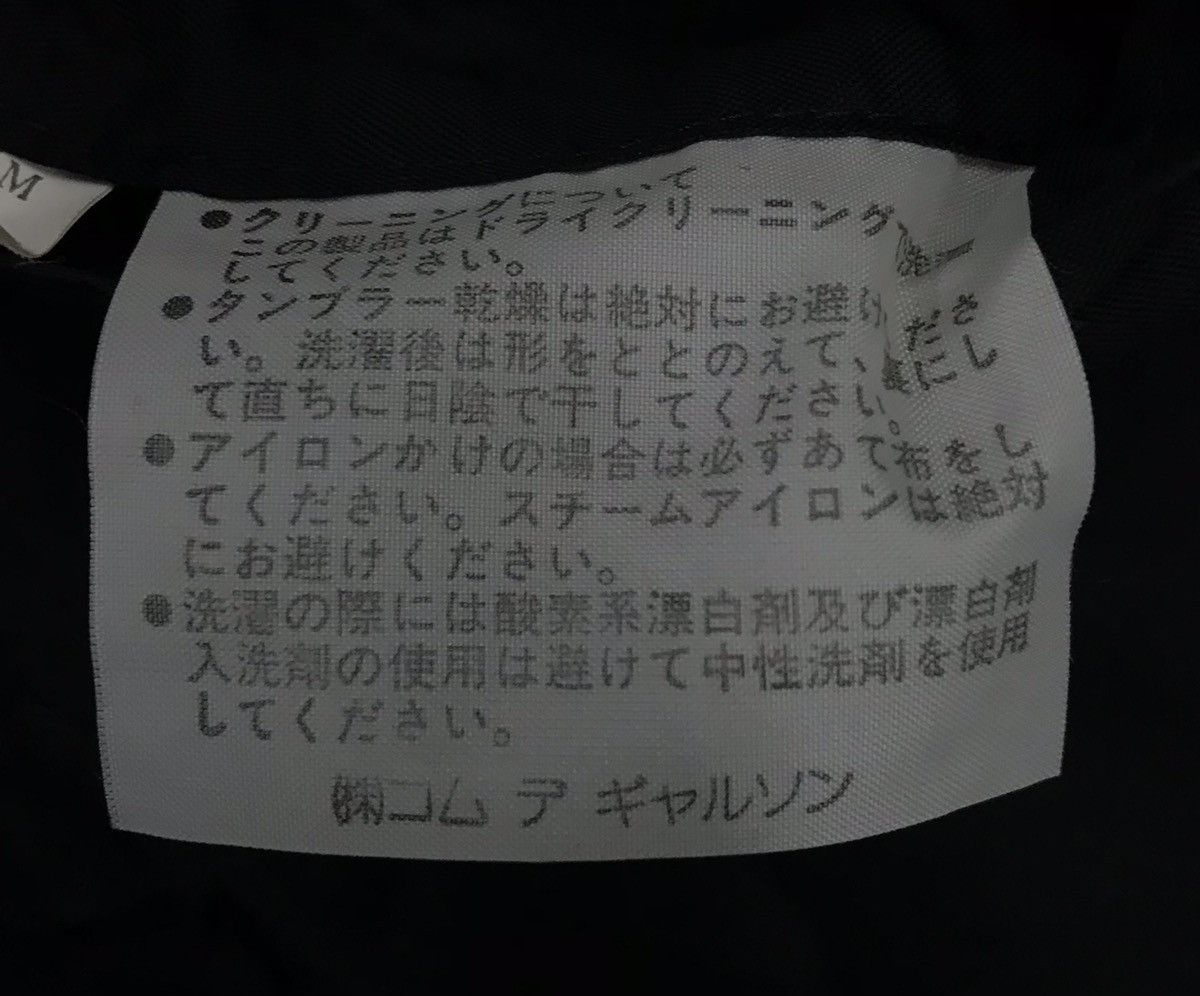 M
●クリーニングについて
この製品はドライクリーニング
してください。
●タンブラー乾燥は絶対にお避けくださ
い。洗濯後は形をととのえて、裏にし
て直ちに日陰で干してください。
●アイロンかけの場合は必ずあて布をし
てください。スチームアイロンは絶対
にお避けください。
●洗濯の際には酸素系漂白剤及び漂白剤
入洗剤の使用は避けて中性洗剤を使用
してください。
㈱コム デ ギャルソン